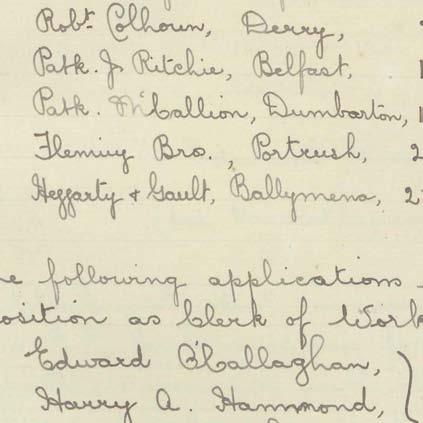 Robt. Colhoun, Derry,
Patk. J. Ritchie, Belfast,
Patk. McCallion, Dumbarton,
Fleming Bro., Portrush, 2
Heggarty & Gault, Ballymena, 2
e following applications
osition as Clerk of Work
Edward O'Callaghan,
Harry A. Hammond,